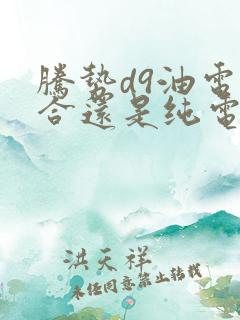 腾势d9油电
合还是纯电
洪天祥
未经同意禁止转载